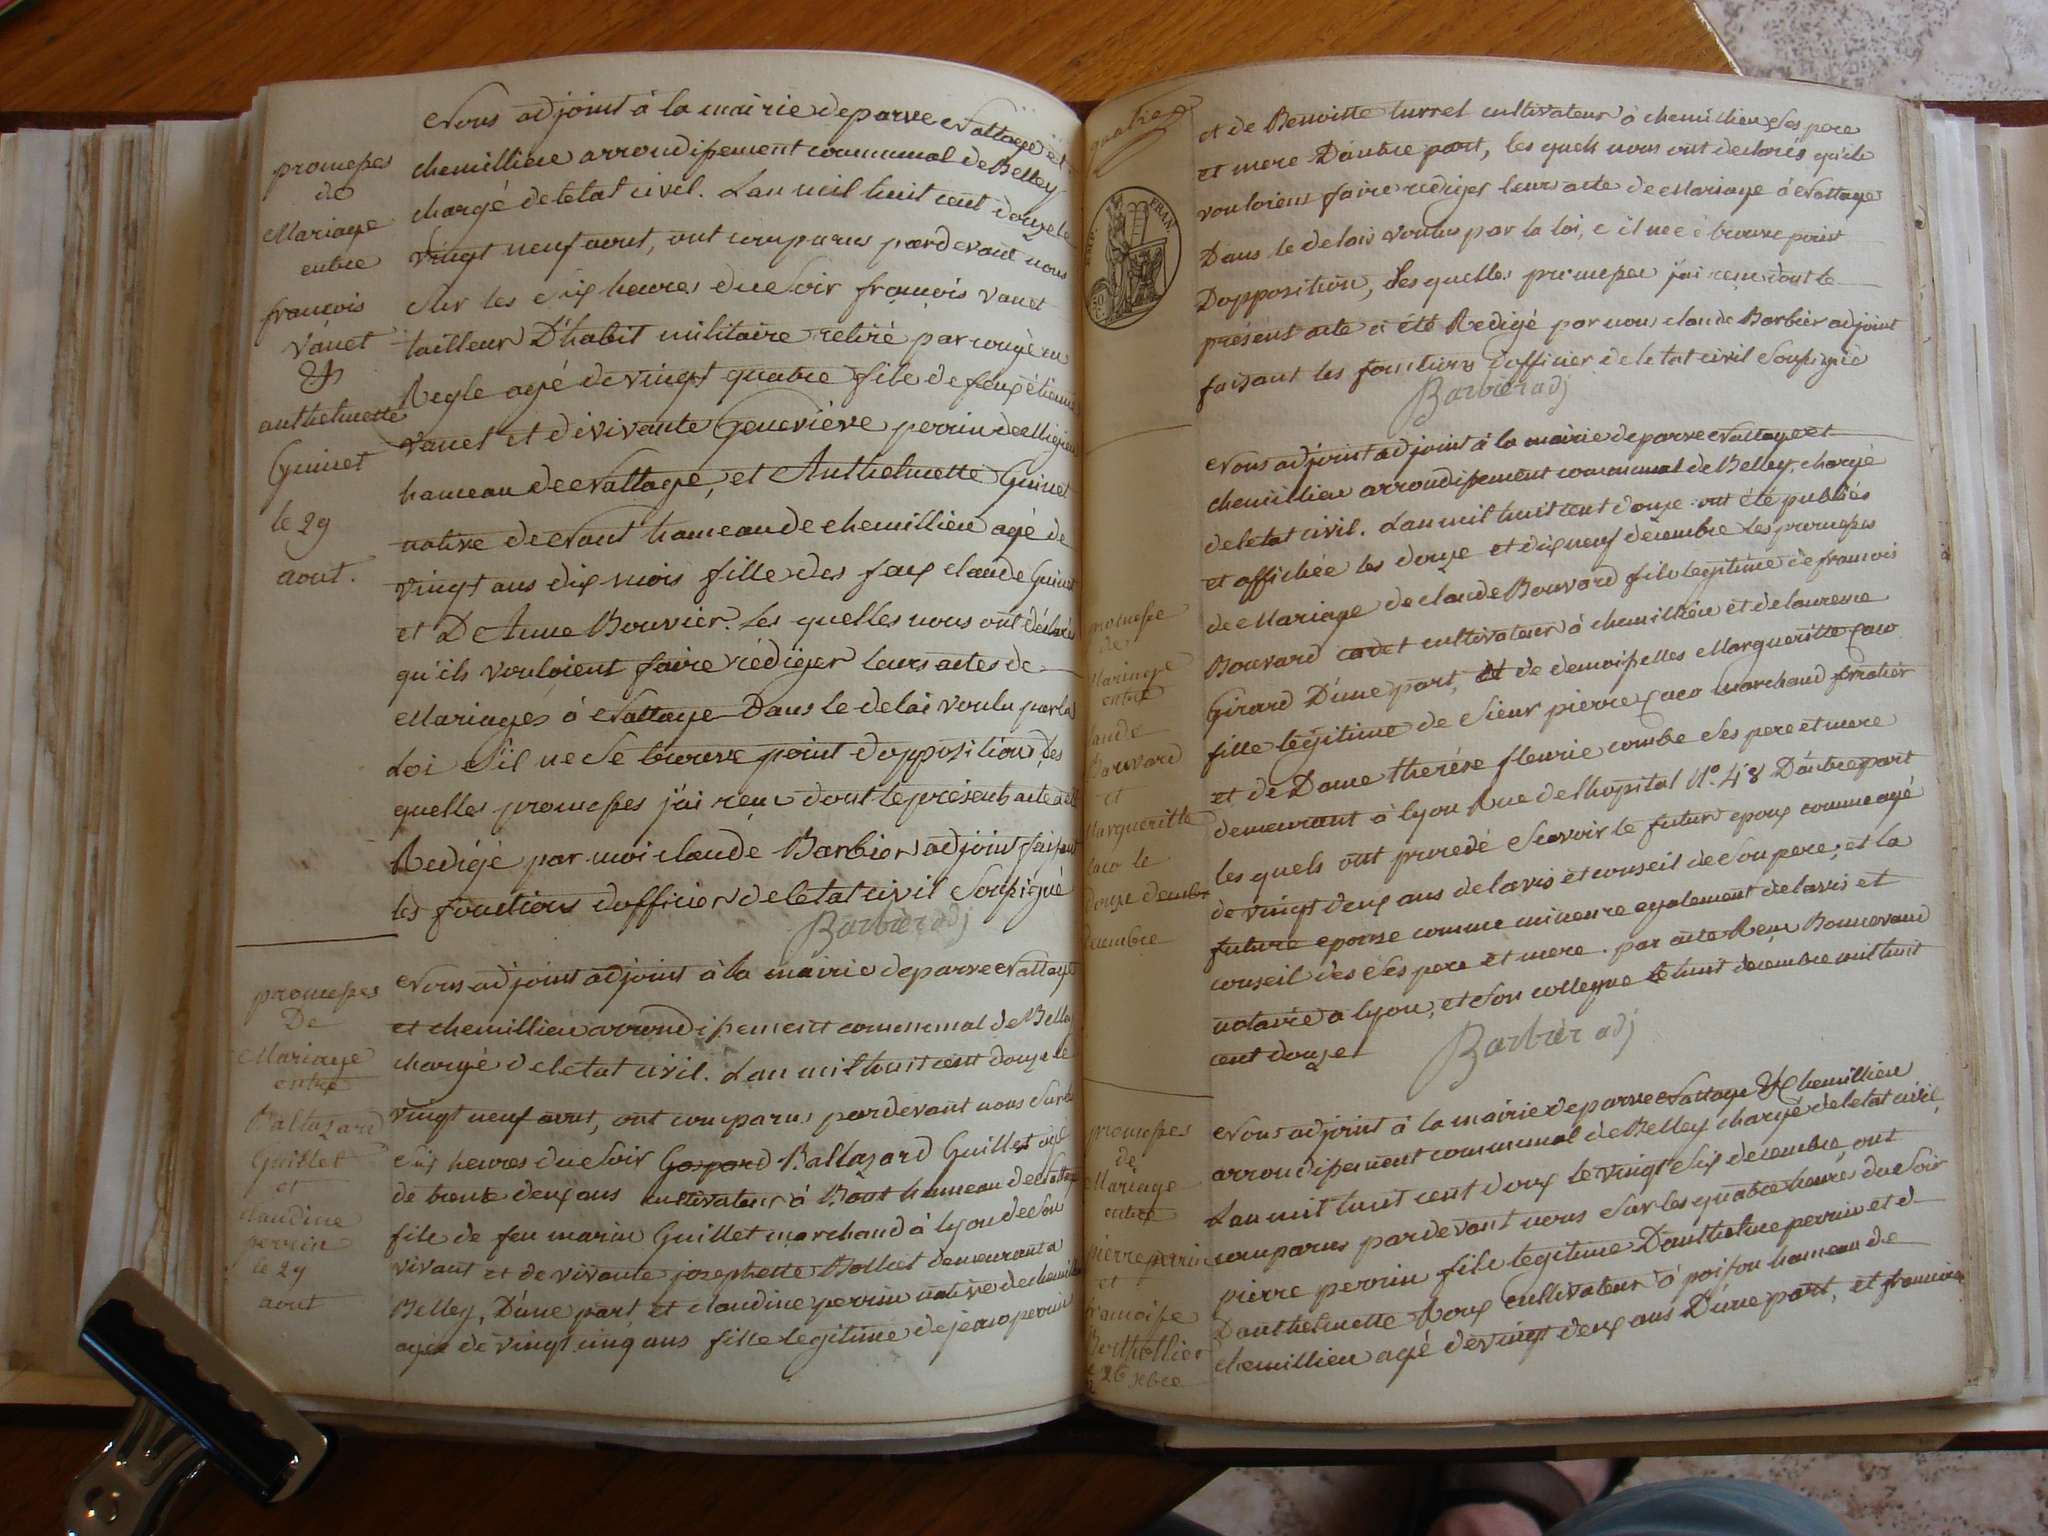 promesses
de
Mariage
entre
francois
vanet
&
anthelmette
Guinet
le 29
aout.
Nous adjoint à la mairie de parve Nattage et
chemillieu arrondissement communal de Belley
chargé de letat civil. Lan mil huit cent douze le
vingt neuf aout, ont comparus pardevant nous
Sur les Six heures du Soir françois vanet
tailleur D'habit militaire retiré par congé en
Regle agé de vingt quatre fils de feux étienne
vanet et de vivante Geneviève perrin
hameau de Nattage, et Anthelmette Guinet
native de hameau de chemillieu agé de
vingt ans dix mois fille des feux claude Guinet
et D'Anne Bouvier. Les quelles nous ont déclarés
qu'ils vouloient faire rédiger leurs actes de
Mariages à Nattage Dans le delai voulu par la
Loi S'il ne Se trouve point d'opposition, les
quelles promesses j'ai reçu dont le présent acte a été
Redigé par moi claude Barbier adjoint faisant
les fonctions dofficier de letat civil Soussigné
Barbier adj
promesses
De
Mariage
entre
Baltazard
Guillet
et
claudine
perrin
le 29
aout
Nous adjoint adjoint à la mairie de parve Nattage
et chemillieu arrondissement communal de Belley
chargé de letat civil. Lan mil huit cent douze le
vingt neuf aout, ont comparus pardevant nous Sur les
Six heures du Soir Gaspard Baltazard Guillet agé
de trente deux ans cultivateur à hameau de Nattage
fils de feu marin Guillet marchand à lyon de Son
vivant et de vivante josephette Bolliet demeurant a
Belley, D'une part, et claudine perrin native de chemillieu
agée de vingt cinq ans fille legitime de jean perrin
et de Benoitte turrel cultivateur à chemillieu Ses pere
et mere D'autre part, les quels nous ont declarés qu'ils
vouloient faire rediger leurs acte de Mariage à Nattage
Dans le delais voulus par la loi, s'il ne se trouve point
Dopposition, Les quelles promesses j'ai reçu dont le
présent acte a été Redigé par nous claude Barbier adjoint
faisant les fonctions d'officier de letat civil Soussigné
Barbier adj
promesse
de
Mariage
entre
laude
Bouvard
et
Marguerite
caco le
douze
décembre
Nous adjoint adjoint à la mairie de parve Nattage et
chemillieu arrondissement communal de Belley, chargé
de letat civil. Lan mil huit cent douze ont été publiés
et affichée les douze et dix neuf décembre Les promesses
de Mariage de claude Bouvard fils legitime de francois
Bouvard cadet cultivateur à chemillieu et de laurence
Girard D'une part, et de demoisselles Margueritte caco
fille légitime de Sieur pierre caco marchand
et de Dame therése fleurie combe Ses pere et mere
demeurant à lyon Rue de lhopital N° 48 D'autre part
les quels ont procedé Scavoir le futur epoux comme agé
de vingt deux ans de lavis et conseil de Son pere; et la
future epouse comme mineure egalement de lavis et
conseil des Ses pere et mere. par acte Reçu Bonnevaud
notaire a lyon, et Son collegue le huit decembre mil huit
cent douze
Barbier adj
promesses
de
Mariage
entre
pierre perrin
et
francoise
Berthollier
le 26 xbre
Nous adjoint à la mairie de parve Nattage & Chemillieu
arrondissement communal de Belley chargé de letat civil,
Lan mil huit cent douz le vingt Six decembre, ont
comparus pardevant nous Sur les quatre heures du Soir
pierre perrin fils legitime D'anthelme perrin et d
D'anthelmette Roux cultivateur à poisson hameau de
chemillieu agé de vingt deux ans D'une part, et francoise